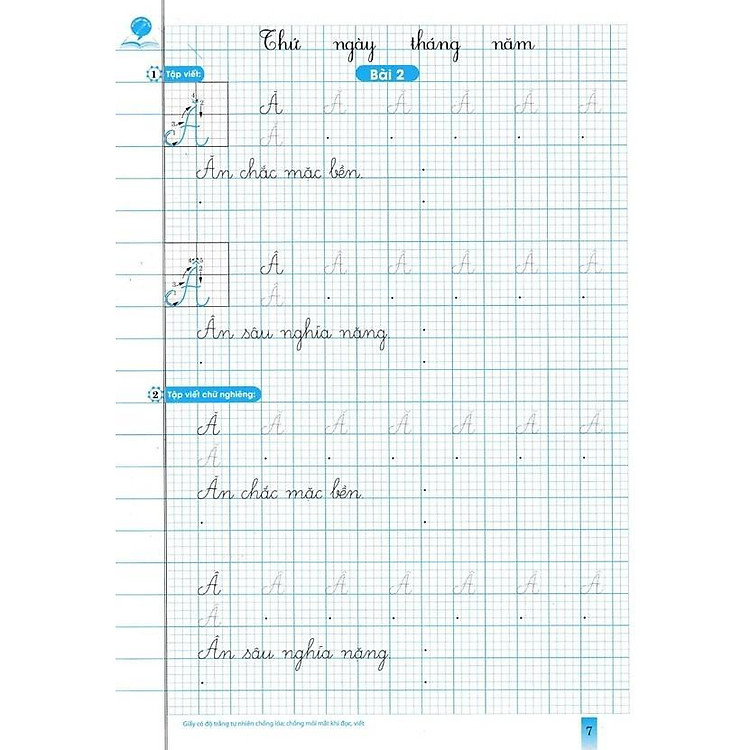 Thứ ngày tháng năm
1 Tập viết:
Bài 2
4 5 3 2 Ă Ă Ă Ă Ă Ă Ă
Ă
Ăn chắc mặc bền.
4 5 3 2 Â Â Â Â Â Â Â
Â
Ân sâu nghĩa nặng
2 Tập viết chữ nghiêng:
Ă Ă Ă Ă Ă Ă Ă
Ă
Ăn chắc mặc bền.
Â Â Â Â Â Â Â
Â
Ân sâu nghĩa nặng
Giấy có độ trắng tự nhiên chống lóa; chống mỏi mắt khi đọc, viết
7